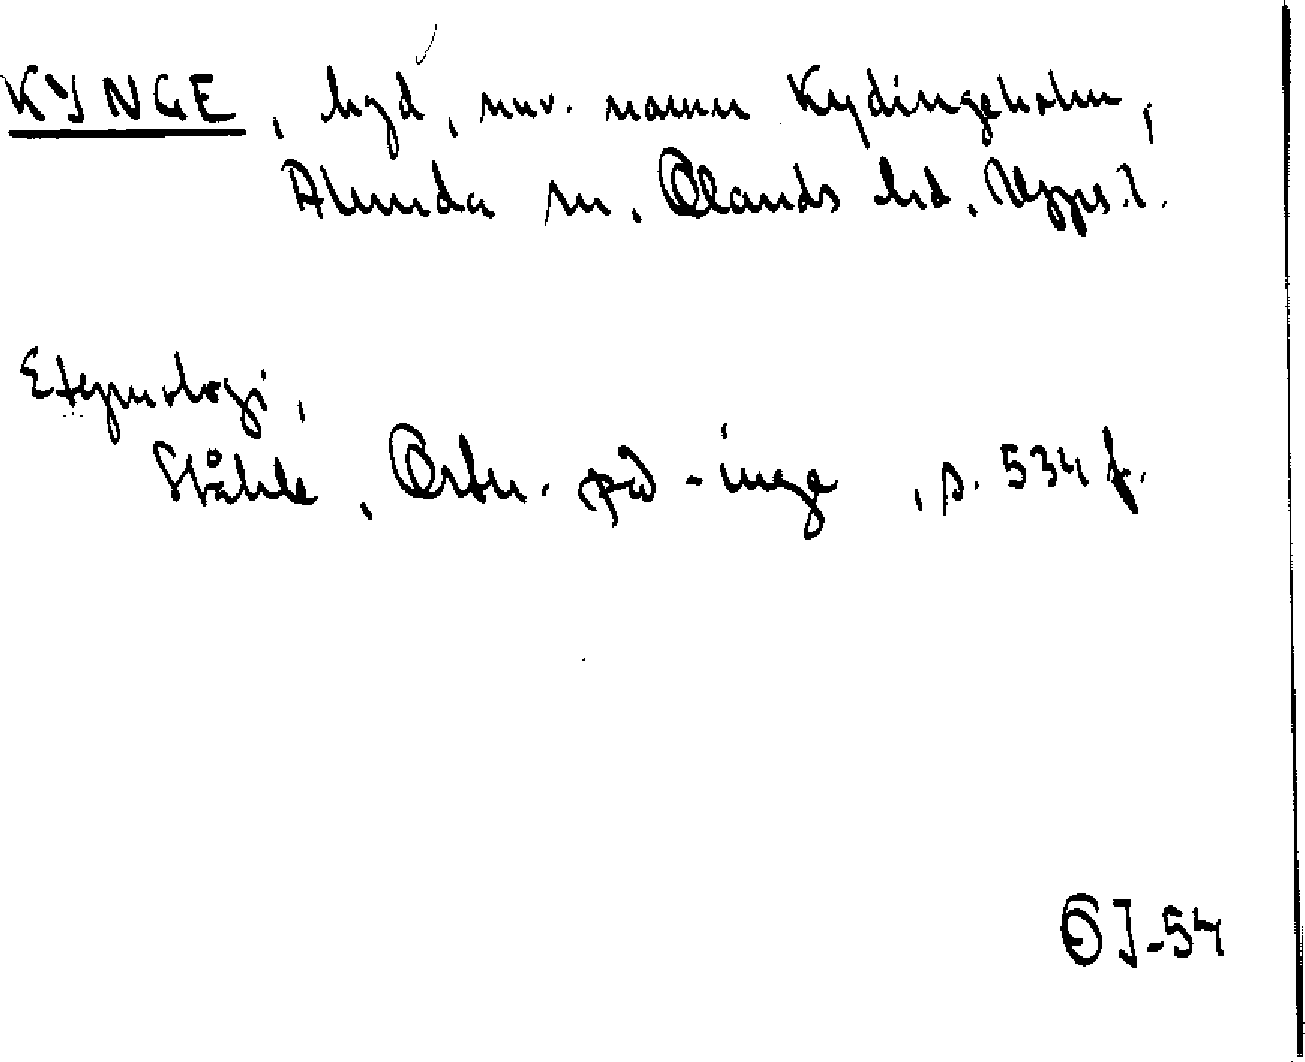 KYNGE, hgd, nuv. namn Kydingeholm,
Alunda sn. Olands hd. Upps. l.
Etymologi,
Ståhle, Ortn. på -inge, s. 534 f.
OJ-54